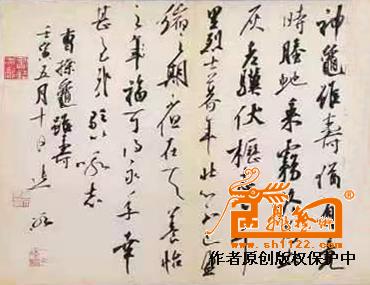 神龜雖壽猶有竟
時騰蛇乘霧終
灰老驥伏櫪志在千
里烈士暮年壯心不已盈
縮之期不但在天養怡
之年福可得永年幸
甚至哉歌以咏志
曹操龜雖壽
壬寅五月十日
www.sh1122.com
作者原创版权保护中